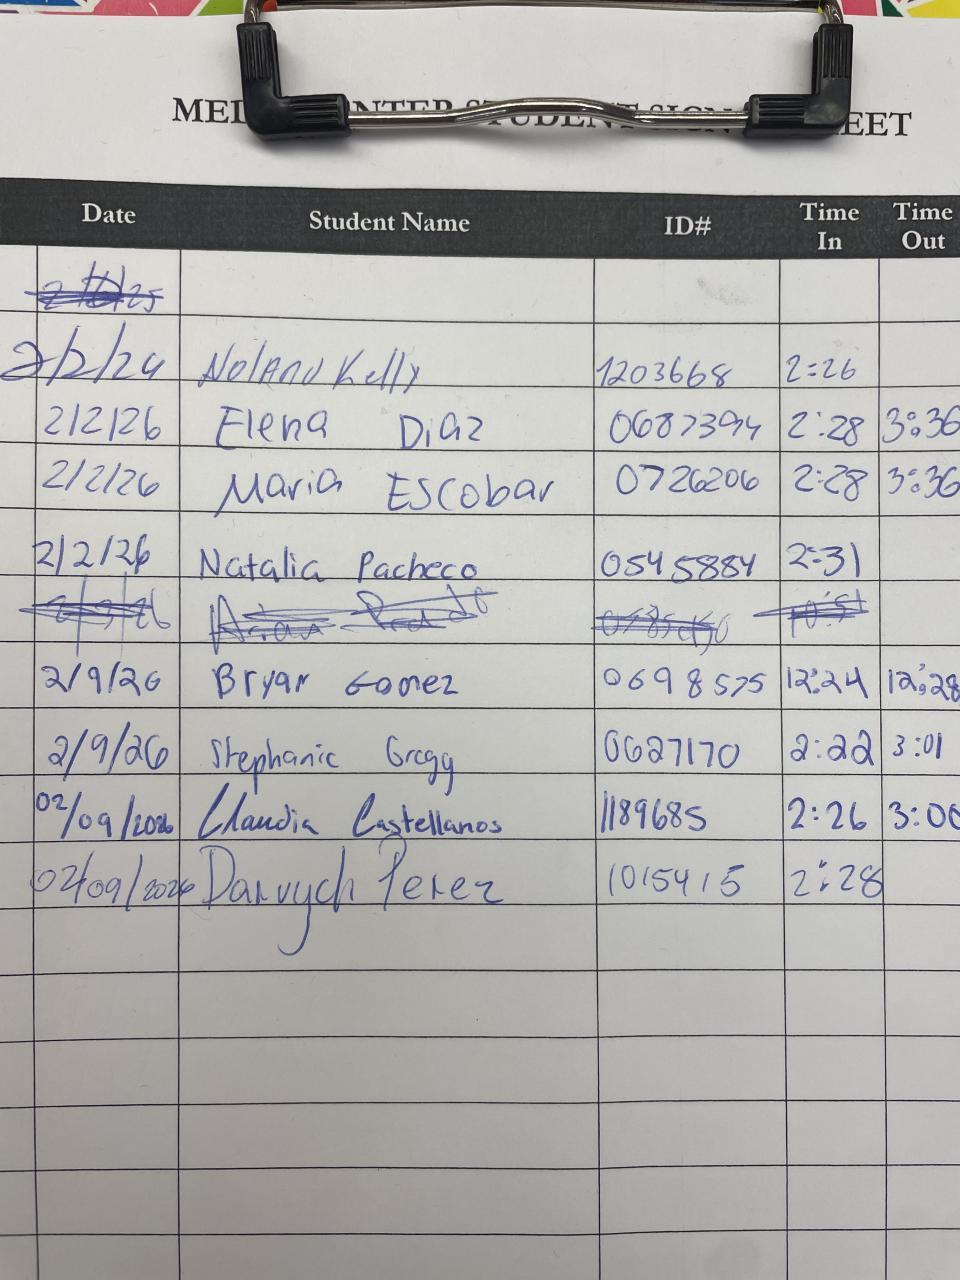 MEDIA CENTER STUDENT SIGN SHEET
Date Student Name ID# Time In Time Out
2/2/24 Noland Kelly 1203668 2:26
2/2/26 Elena Diaz 0687394 2:28 3:36
2/2/26 Maria Escobar 0726206 2:28 3:36
2/2/26 Natalia Pacheco 0545884 2:31
2/9/26 Bryan Gomez 0698575 12:24 12:28
2/9/26 Stephanie Gregg 0627170 2:22 3:01
02/09/2026 Claudia Castellanos 1189685 2:26 3:00
02/09/2026 Darvych Perez 1015415 2:28